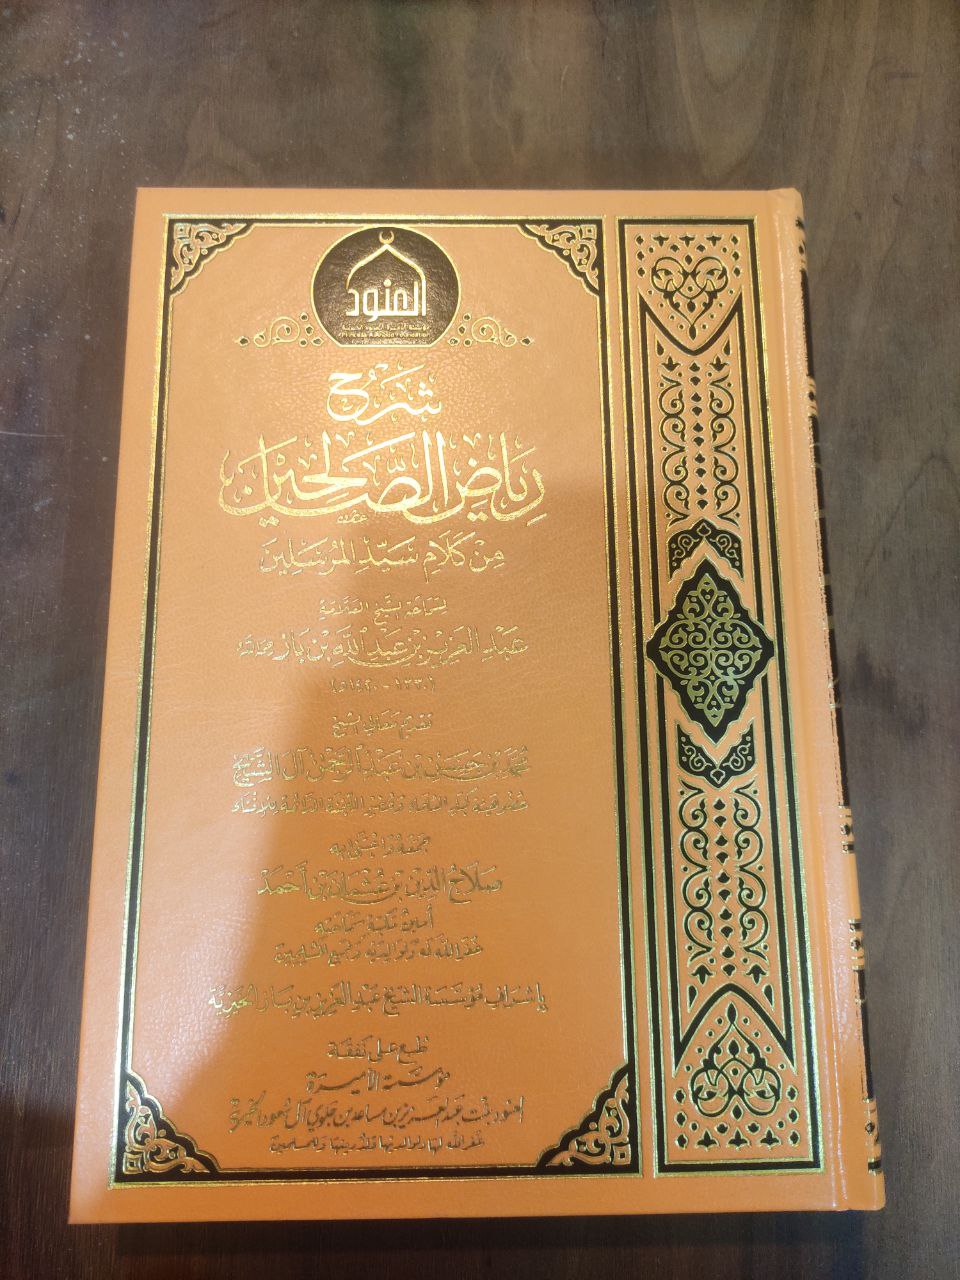 العنود
شرح
رياض الصالحين
من كلام سيد المرسلين
لسماحة الشيخ العلامة
عبد العزيز بن عبد الله بن باز رحمه الله
(١٣٣٠ - ١٤٢٠هـ)
تقديم معالي الشيخ
محمد بن حسن بن عبد الرحمن آل الشيخ
عضو هيئة كبار العلماء وعضو اللجنة الدائمة للإفتاء
جمعه واعتنى به
صلاح الدين بن عثمان بن أحمد
أمين مكتبة سماحته
غفر الله له ولوالديه وجميع المسلمين
بإشراف مؤسسة الشيخ عبد العزيز بن باز الخيرية
طبع على نفقة
مؤسسة الأميرة
العنود بنت عبد العزيز بن مساعد بن جلوي آل سعود الخيرية
غفر الله لها ولوالديها ولذريتها وللمسلمين